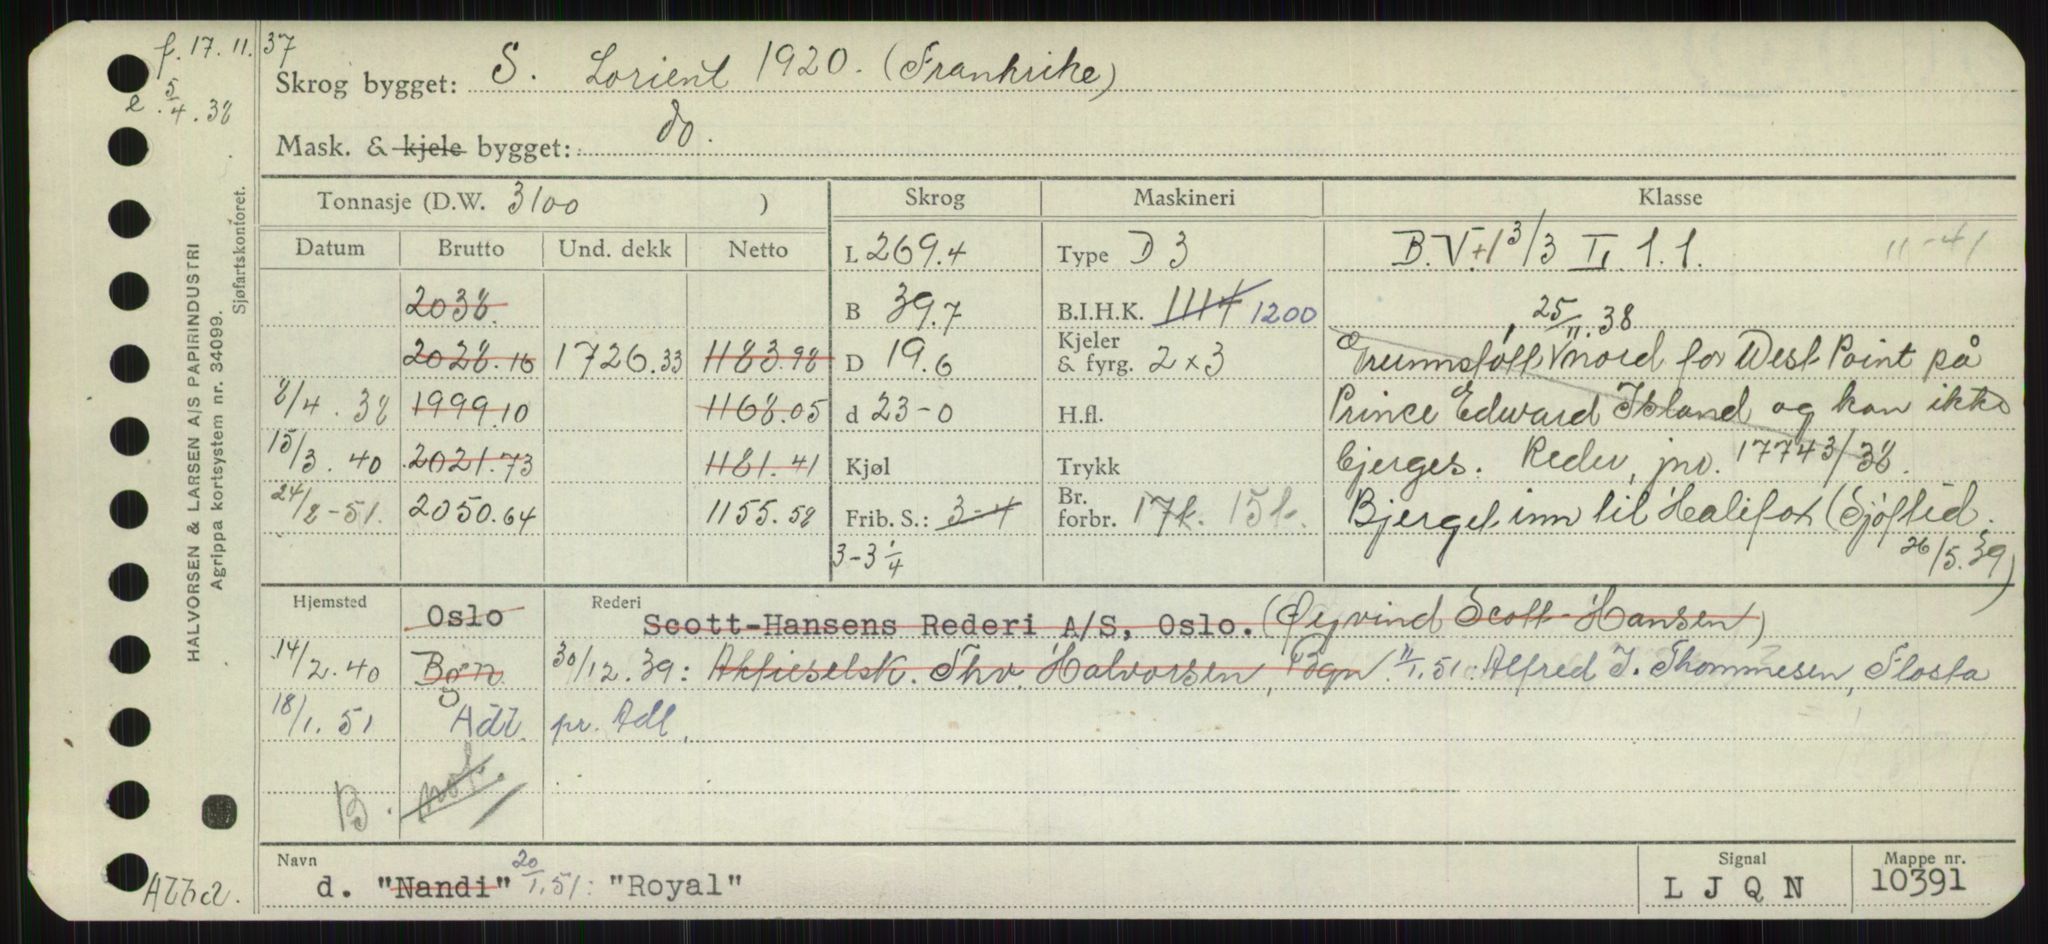 f. 17.11.37
e. 5/4.38
HALVORSEN & LARSEN A/S PAPIRINDUSTRI
Agrippa kortsystem nr. 34099.
Sjøfartskontoret.
Skrog bygget: S. Lorient 1920. (Frankrike)
Mask. & kjele bygget: do.
Tonnasje (D.W. 3100 )
Datum Brutto Und. dekk Netto
2038.
2028.16 1726.33 1183.98
8/4.38 1999.10 1168.05
15/3.40 2021.73 1181.41
24/8-51. 2050.64 1155.58
Skrog
L 269.4
B 39.7
D 19.6
d 23-0
Kjøl
Frib. S.: 3-4
3-3 1/4
Maskineri
Type D 3
B.I.H.K. 1114 1200
Kjeler & fyrg. 2 x 3
H.fl.
Trykk
Br. forbr. 17k. 15k.
Klasse
B.V.+1 3/3 II, 1.1. 11-41
25/11.38
Grunnstøtt nord for West Point på
Prince Edward Island og kan ikke
bjerges. Rederi, jnr. 17743/38.
Bjerget inn til Halifax (Sjøftid.
26/5.39)
Hjemsted Rederi
Oslo Scott-Hansens Rederi A/S, Oslo. (Øyvind Scott-Hansen)
14/2.40 Bgn. 30/12.39: Aktieselsk. Thv. Halvorsen, Bgn. 11/1.51: Alfred J. Thommesen, Flosta
18/1.51 Adl. pr. Adl.
B. not.
Navn
d. "Nandi" 20/1.51: "Royal"
Signal
L J Q N
Mappe nr.
10391